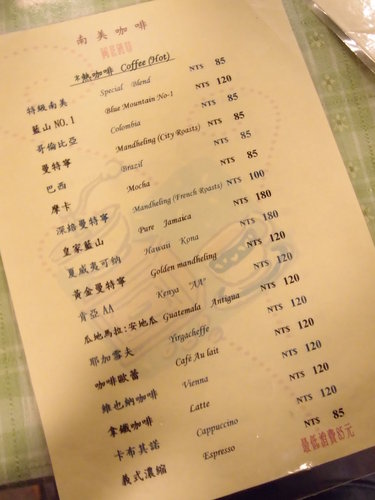 南美咖啡
*熱咖啡 Coffee (Hot)
特級南美 Special Blend NT$ 85
藍山 NO.1 Blue Mountain No-1 NT$ 120
哥倫比亞 Colombia NT$ 85
曼特寧 Mandheling (City Roasts) NT$ 85
巴西 Brazil NT$ 85
摩卡 Mocha NT$ 85
深焙曼特寧 Mandheling (French Roasts) NT$ 100
皇家藍山 Pure Jamaica NT$ 180
夏威夷可納 Hawaii Kona NT$ 180
黃金曼特寧 Golden mandheling NT$ 120
肯亞 AA Kenya "AA" NT$ 120
瓜地馬拉:安地瓜 Guatemala Antigua NT$ 120
耶加雪夫 Yirgacheffe NT$ 120
咖啡歐蕾 Café Au lait NT$ 120
維也納咖啡 Vienna NT$ 120
拿鐵咖啡 Latte NT$ 120
卡布其諾 Cappuccino NT$ 120
義式濃縮 Espresso NT$ 85
最低消費85元